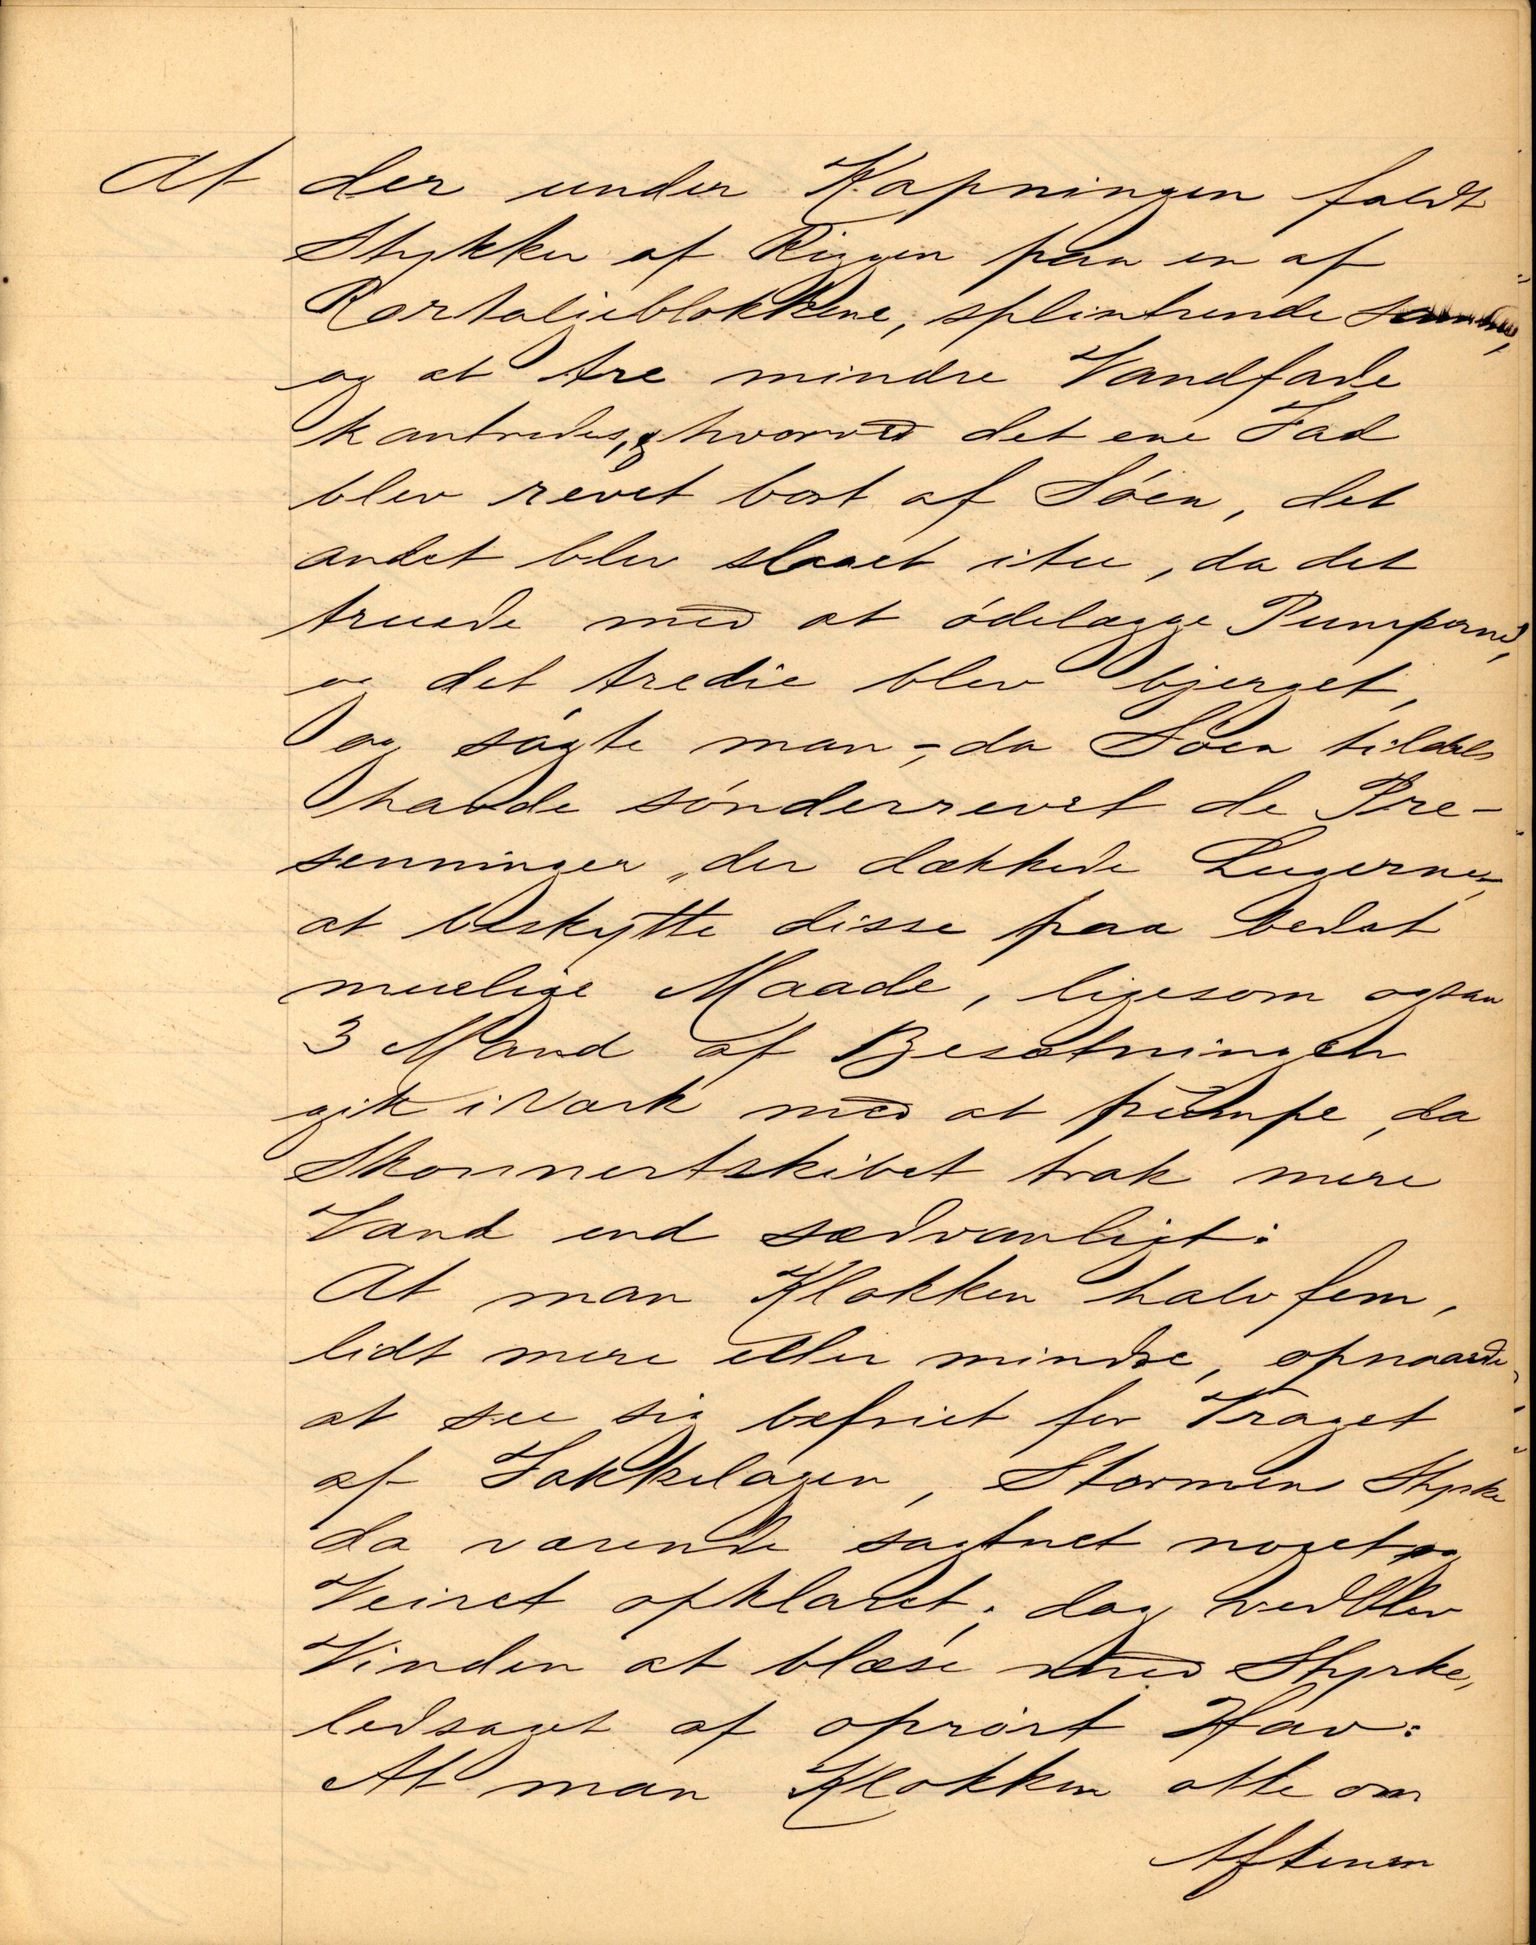 At der under Kapningen faldt
Stykker af Riggen paa en af
Rortaljeblokkene, splintrende samme,
og at tre mindre Vandfade
kantredes, hvorved det ene Fad
blev revet bort af Søen, det
andet blev slaaet itu, da det
truede med at ødelægge Pumperne,
og det tredie blev bjerget,
og søgte man -, da Søen tildels
havde sønderrevet de Pre-
senninger, der dækkede Lugerne,-
at beskytte disse paa bedst
muelige Maade, ligesom ogsaa
3 Mand af Besætningen
gik i Værk med at pumpe, da
Skonnertskibet trak mere
Vand end sædvanligt:
At man Klokken halv fem,
lidt mere eller mindre, opnaaede
at see sig befriet for Vraget
af Takkelagen, Stormens Styrke
da værende sagtnet noget og
Veiret opklaret; dog vedblev
Vinden at blæse med Styrke,
ledsaget af oprørt Hav:
At man Klokken otte om
Aftenen